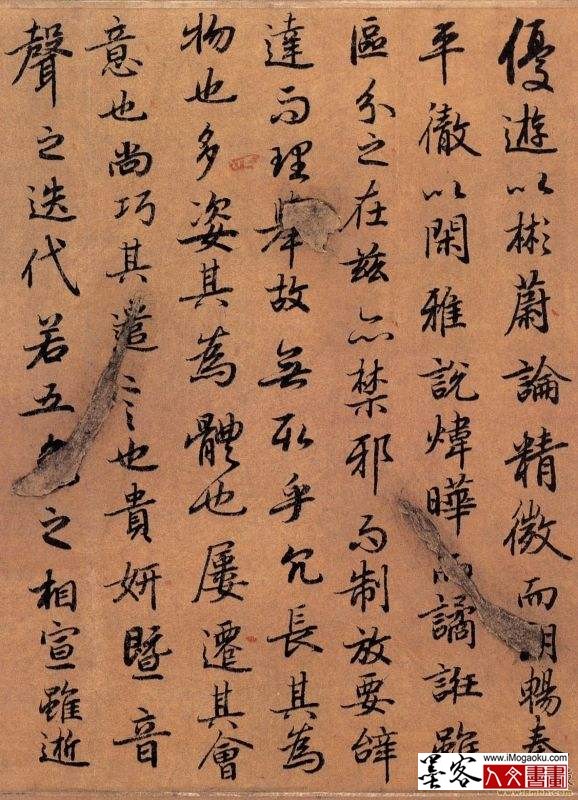 優遊以彬蔚論精微而朗暢奏
平徹以閑雅說煒曄而譎誑雖
區分之在茲亦禁邪而制放要辭
達而理舉故無取乎冗長其為
物也多姿其為體也屢遷其會
意也尚巧其遣言也貴妍暨音
聲之迭代若五色之相宣雖逝
www.iMogaoku.com
墨客